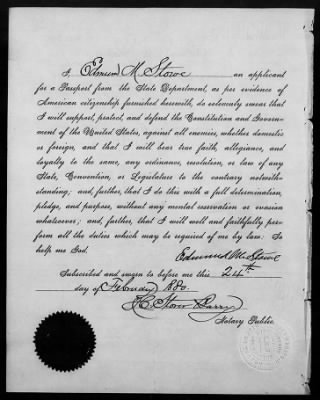 I, Edmund M. Stowe an applicant
for a Passport from the State Department, as per evidence of
American citizenship furnished herewith, do solemnly swear that
I will support, protect, and defend the Constitution and Govern-
ment of the United States, against all enemies, whether domestic
or foreign, and that I will bear true faith, allegiance, and
loyalty to the same, any ordinance, resolution, or law of any
State, Convention, or Legislature to the contrary notwith-
standing; and, further, that I do this with a full determination,
pledge, and purpose, without any mental reservation or evasion
whatsoever; and, further, that I will well and faithfully per-
form all the duties which may be required of me by law: So
help me God.
Edmund M. Stowe
Subscribed and sworn to before me this 24th
day of February 1880.
Notary Public.